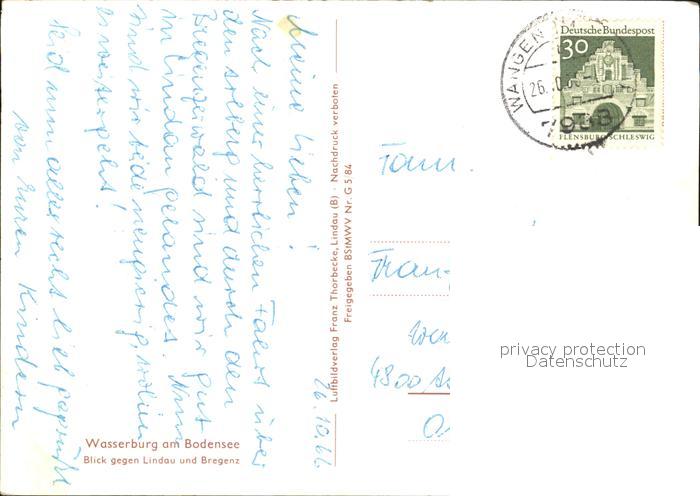 Meine Lieben!
Nach einer herrlichen Fahrt über
den Arlberg und durch den
Bregenzwald sind wir gut
in Lindau gelandet. Nun
sind wir beide neugierig, wohin
es weitergeht!
Seid nun alle recht lieb gegrüßt
von Euren Kindern
26.10.66
Wasserburg am Bodensee
Blick gegen Lindau und Bregenz
Luftbildverlag Franz Thorbecke, Lindau (B) · Nachdruck verboten
Freigegeben BStMWV Nr. G 5/84
WANGEN IM
26.
7988
Deutsche Bundespost
30
FLENSBURG/SCHLESWIG
Fam.
Fran
privacy protection
Datenschutz